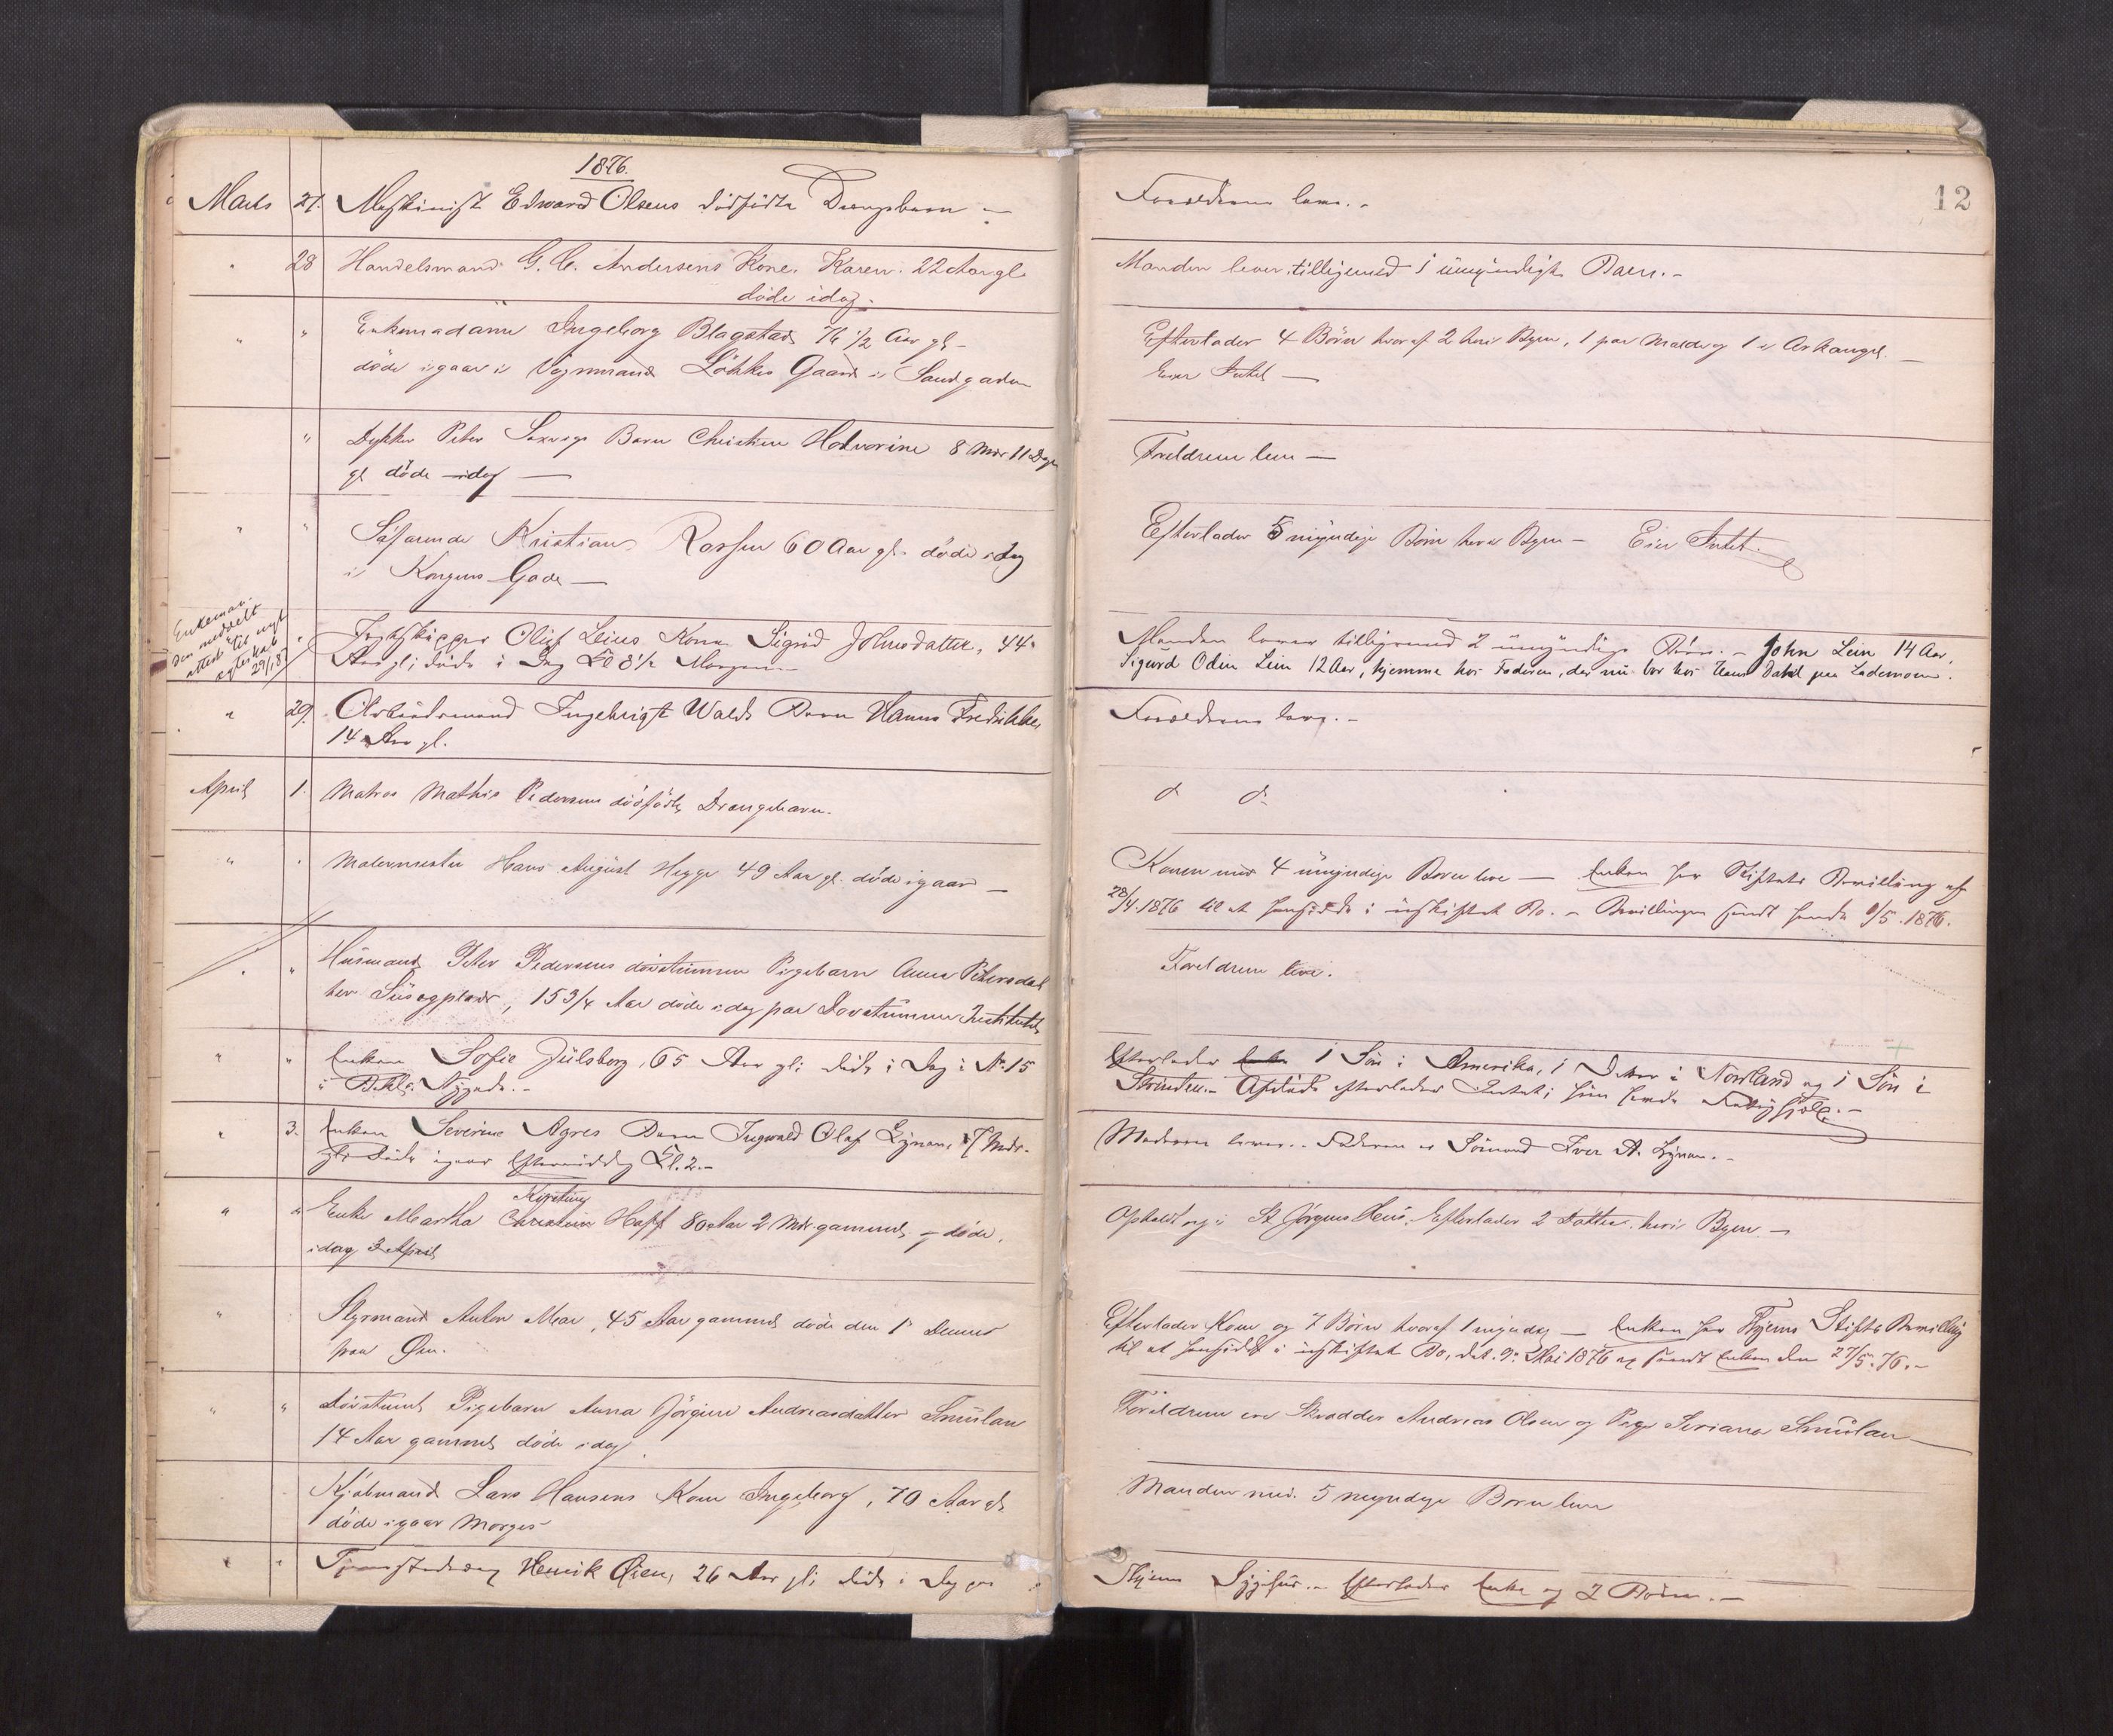 1876.
12
Marts 27. Maskinist Edward Olsens dödfödte Drengebarn —
Forældrene leve. -
" 28 Handelsmand G. C. Andersens Kone Karen 22 Aar gl
döde idag.
Manden lever tilligemed 1 umyndigt Barn. -
" " Enkemadame Ingeborg Blagstad 76 1/2 Aar gl -
döde igaar i Vognmand Lökkes Gaard i Sandgaden
Efterlader 4 Börn hvoraf 2 her i Byen, 1 paa Molde og 1 i Arkangel. —
Eier Intet —
" Dykker Peter Barn Christine Halvorine 8 Mdr 11 Dage
gl döde idag —
Foreldrene leve —
" " Söfarende Kristian 60 Aar gl. döde idag
i Kongens Gade —
Efterlader 5 myndige Börn her i Byen - Eier Intet.
Enkeman-
den meddelt
attest til nyt
egteskab
29/1 8
Olüf Leins Kone Sigrid Johnsdatter, 44
Aar gl; döde i Dag Kl 8 1/2 Morgen. -
Manden lever tilligemed 2 umyndige Börn. - John Lein 14 Aar,
Sigurd Odin Lein 12 Aar, hjemme hos Faderen, der nu bor hos Hans Dahl paa Lademoen.
" 29. Arbeidsmand Ingebrigt Walds Barn Hanna Fredrikke
14 Aar gl.
Forældrene leve. -
April 1. Matros Mathis Pedersens dödfödte Drengebarn.
do do
" " Malermester Hans August Hegge 49 Aar gl. döde igaar —
Konen med 4 umyndige Börn leve — Enken har Stiftets Bevilling af
28/4. 1876 til at hensidde i uskiftet Bo. - Bevillingen sendt hende 9/5. 1876.
" " Husmand Peter Pedersens dövstumme Pigebarn Anna Petersdat
ter 15 3/4 Aar döde idag paa Dovstumme Institutet
Foreldrene leve.
" " Enken Sofie Julsborg, 65 Aar gl; döde i Dag i No 15
i
Efterlader 1 Sön i Amerika, 1 Datter i Nordland og 1 Sön i
Strinden. - Afdöde efterlader Intet; hun havde Fattighjælp. -
" 3. Enken Severine Agnes Barn Ingvald Olaf Lynum, 7 Mdr.
gl. döde igaar Eftermiddag Kl. 2. -
Moderen lever. Faderen er Sömand Iver A. Lynum. -
" " Enke Martha Christine Kirstine Hoff 80 Aar 2 Mdr. gammel - döde
idag 3 April
Opholdt sig i St Jörgens Hus. Efterlader 2 Döttre her i Byen —
" Styrmand Anton Moe, 45 Aar gammel döde den 1ste Dennes
paa Öen.
Efterlader Kone og 7 Börn hvoraf 1 myndig — Enken har Thjems Stifts Bevilling
til at hensidde i uskiftet Bo, dat. 9. Mai 1876 og sendt Enken den 27/5. 76. -
" " Dövstumt Pigebarn Anna Jörgine Andreasdatter Smulan
14 Aar gammel döde idag.
Föreldrene ere Skrædder Andreas Olsen og Pige Seriana Smulan —
Kjöbmand Lars Hansens Kone Ingeborg, 70 Aar gl.
döde igaar Morges
Manden med 5 myndige Born leve
" " Henrik Öien, 26 Aar gl; döde i Dag paa
Thjems Sygehus. - Efterlader Enke og 2 Börn. -